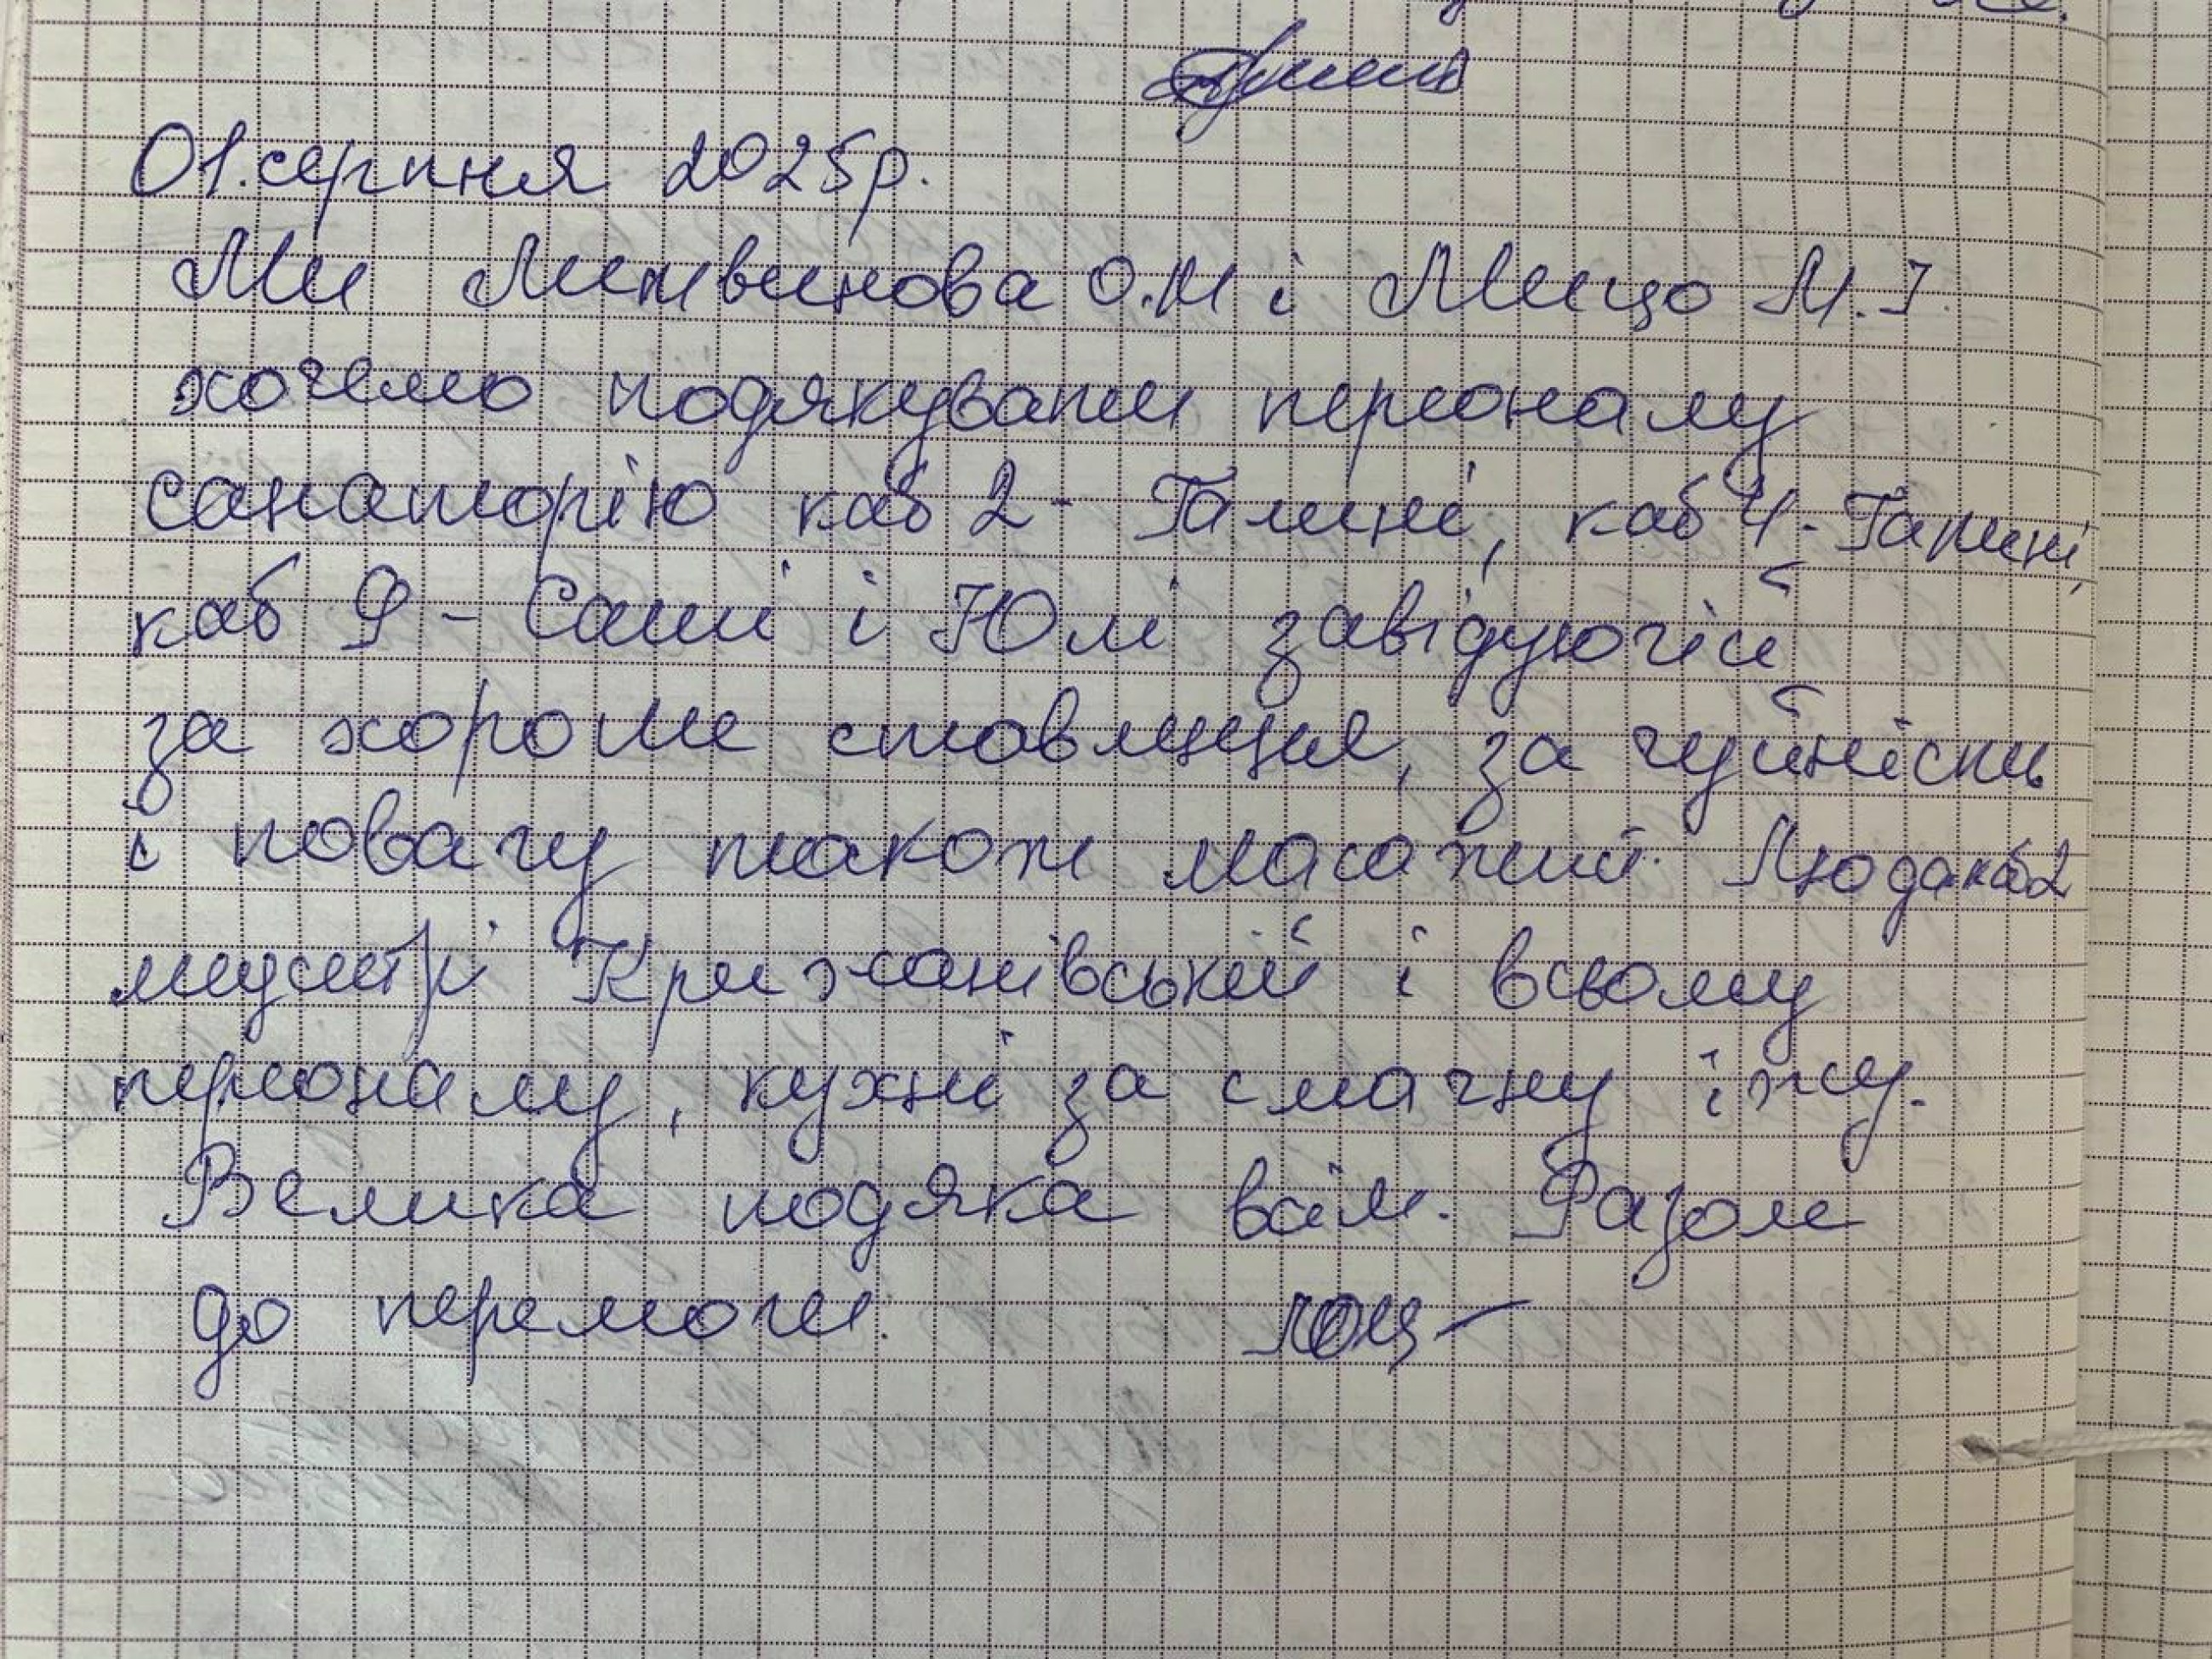 01.серпня 2025р.
Ми Литвинова О.М і Мицо М.І.
хочемо подякувати персоналу
санаторію каб 2 - Галині, каб 4 - Галині,
каб 9 - Саші і Юлі завідуючій
за хороше ставлення, за чуйність
і повагу також масажист. Люда каб 2
медсетрі Крижанівській і всьому
персоналу, кухні за смачну їжу.
Велика подяка всім. Разом
до перемоги.